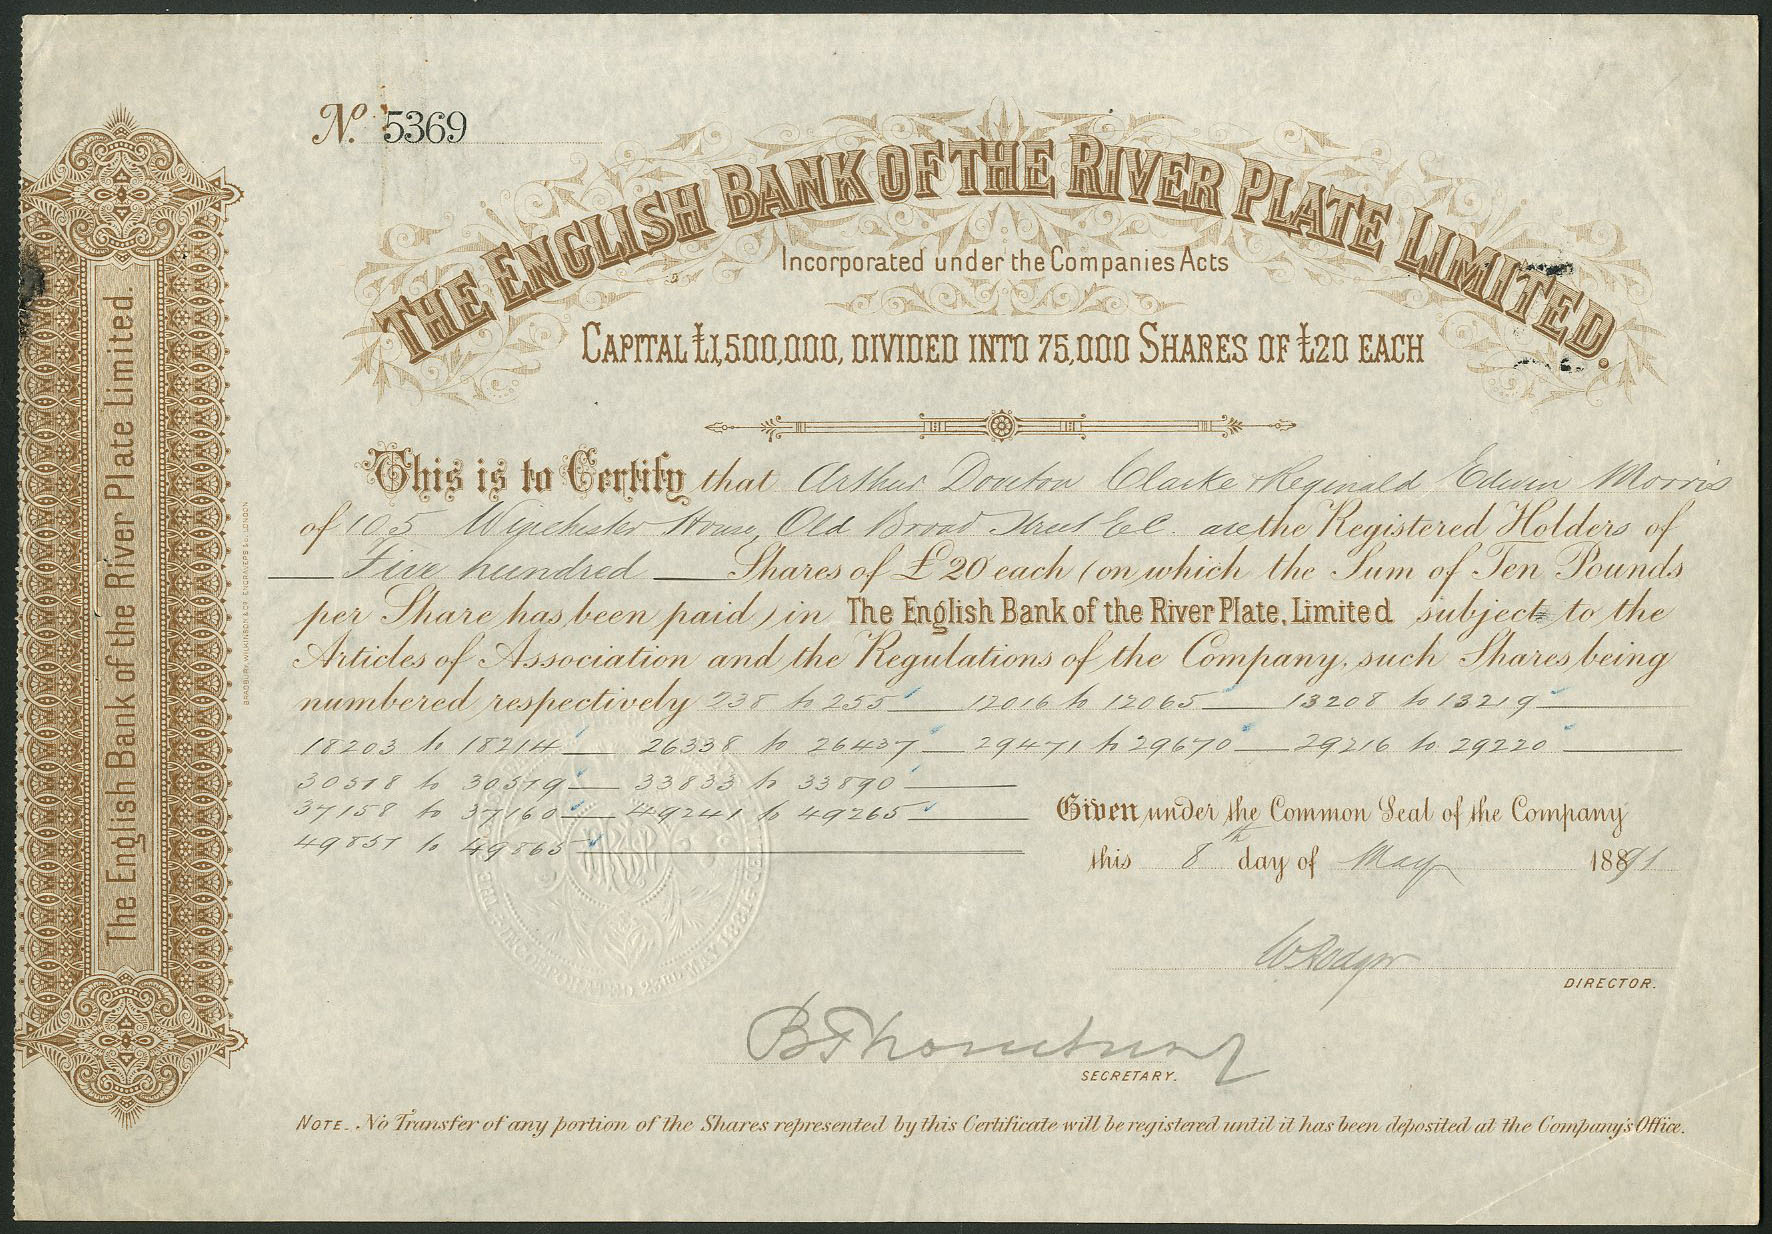 No. 5369
THE ENGLISH BANK OF THE RIVER PLATE LIMITED.
Incorporated under the Companies Acts
CAPITAL £1,500,000, DIVIDED INTO 75,000 SHARES OF £20 EACH
This is to Certify that Arthur Douton Clarke & Reginald Edwin Morris
of 105 Winchester House, Old Broad Street EC. are the Registered Holders of
Five hundred Shares of £20 each (on which the Sum of Ten Pounds
per Share has been paid) in The English Bank of the River Plate, Limited subject to the
Articles of Association and the Regulations of the Company, such Shares being
numbered respectively 238 to 255 12016 to 12065 13208 to 13219
18203 to 18214 26338 to 26437 29471 to 29670 29216 to 29220
30518 to 30519 33833 to 33890
37158 to 37160 49241 to 49265
49851 to 49865
Given under the Common Seal of the Company
this 8th day of May 1891
DIRECTOR.
SECRETARY.
NOTE. No Transfer of any portion of the Shares represented by this Certificate will be registered until it has been deposited at the Company's Office.
The English Bank of the River Plate Limited.
BRADBURY, WILKINSON & Co. ENGRAVERS &c. LONDON
INCORPORATED 23RD MAY 1881